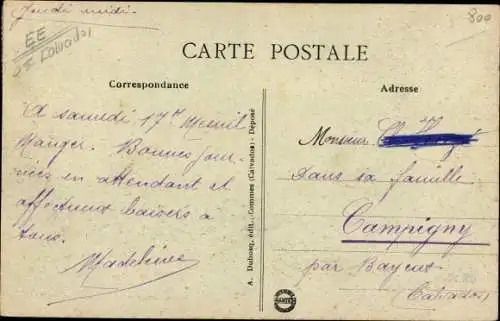 Jeudi midi
EE
Calvados
800
CARTE POSTALE
Correspondance
Adresse
A samedi 17h Mesnil
Mauger. Bonnes jour-
nées en attendant et
affectueux baisers à
tous.
Madeleine
A. Dubosq, édit., Commes (Calvados) - Déposé
Monsieur
Dans sa famille
Campigny
par Bayeux
(Calvados)